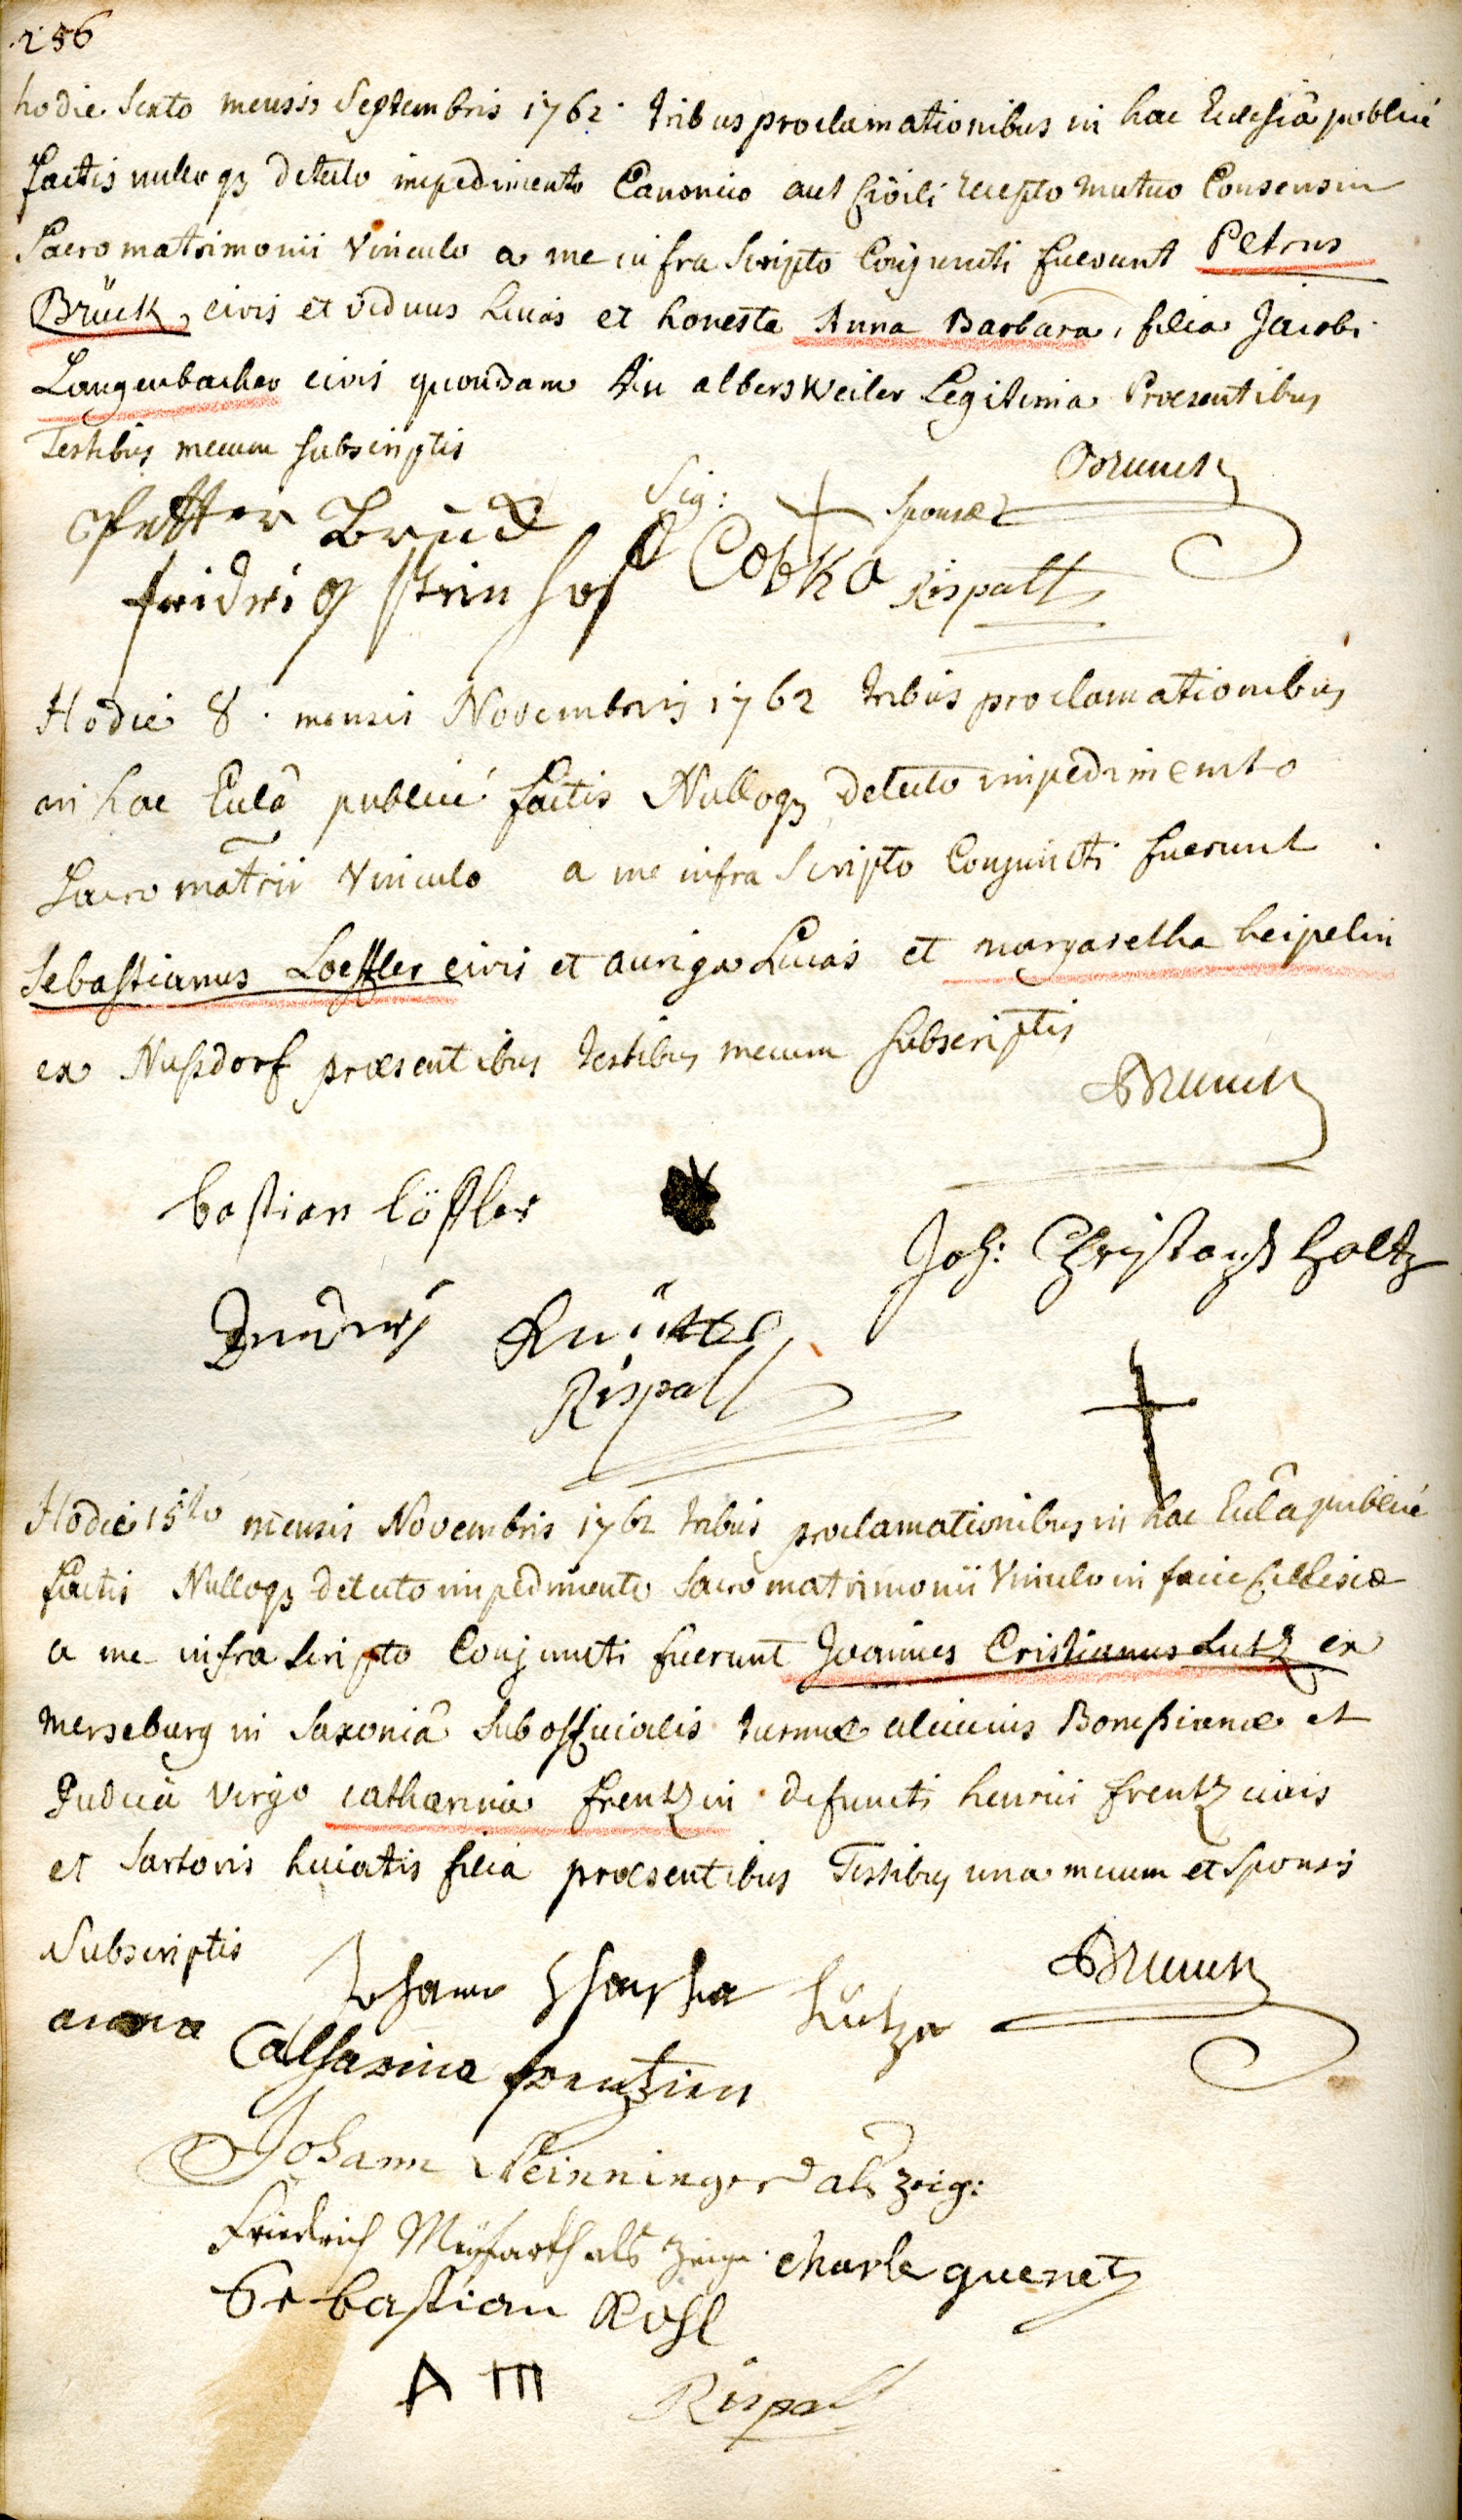 256
hodie Sexto mensis Septembris 1762. tribus proclamationibus in hac Ecclesiâ publicé
factis nulloq3 detecto impedimento Canonico aut Civili recepto mutuo Consensu
Sacro matrimonii Vinculo a me infra Scripto Conjuncti fuerunt Petrus
Brück, civis et viduus hucas et honesta Anna Barbara, filia Jacobi
Langenbacher civis quondam in albersweiler Legitima Praesentibus
Testibus mecum subscriptis
Brunck
Sig: + Sponsae
Petter Brück
fridrig stein hof Cobka Rispalt
Hodie 8. mensis Novembris 1762 tribus proclamationibus
in hac Eccla publicé factis Nulloq3 detecto impedimento
Sacro matrii Vinculo a me infra Scripto Conjuncti fuerunt
Sebastianus Loeffler civis et auriga Lucas et margaretha heipelin
ex Nußdorf praesentibus testibus mecum subscriptis
Brunck
bastian löffler
Joh: Christoph Holtz
Rispalt
Hodie 15to mensis Novembris 1762 tribus proclamationibus in hac Ecclâ publicé
factis Nulloq3 detecto impedimento Sacro matrimonii Vinculo in facie Ecclesiae
a me infra Scripto Conjuncti fuerunt Joannes Cristianus Lutz ex
Merseburg in Saxoniâ Subofficialis turmae
et
Pudica Virgo catharina frentzin defuncti henrici frentz civis
et Sartoris huiatis filia praesentibus Testibus una mecum et Sponsis
Subscriptis
Brunck
Johann Lutze
anna Catharina frentzien
Johann Steinninger als Zeig:
Friedrich Meyfarth als Zeige charle guenet
Sebastian Rohl
A III Rispalt